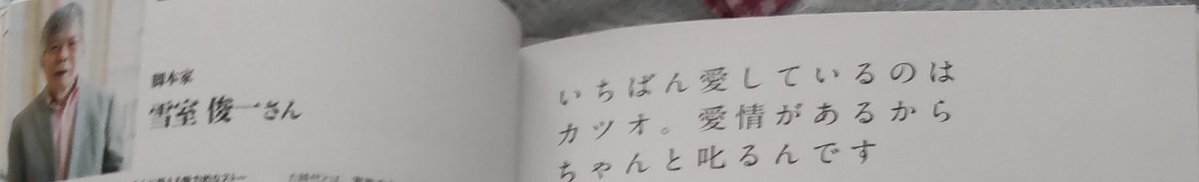 脚本家
雪室 俊一さん
いちばん愛しているのは
カツオ。愛情があるから
ちゃんと叱るんです